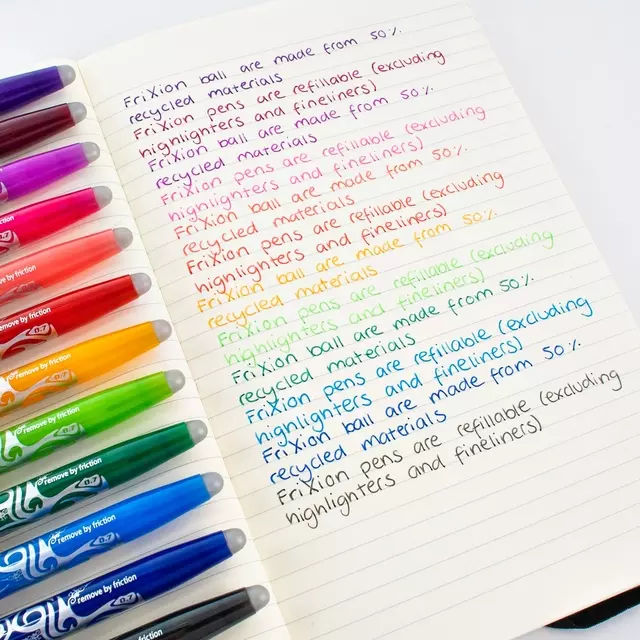 FriXion ball are made from 50%
recycled materials
FriXion pens are refillable (excluding
highlighters and fineliners)
FriXion ball are made from 50%
recycled materials
FriXion pens are refillable (excluding
highlighters and fineliners)
FriXion ball are made from 50%
recycled materials
FriXion pens are refillable (excluding
highlighters and fineliners)
FriXion ball are made from 50%
recycled materials
FriXion pens are refillable (excluding
highlighters and fineliners)
FriXion ball are made from 50%
recycled materials
FriXion pens are refillable (excluding
highlighters and fineliners)
FriXion ball are made from 50%
recycled materials
FriXion pens are refillable (excluding
highlighters and fineliners)
friction
friction
by friction
remove by friction
by friction
0.7
remove by friction
remove by friction
remove by friction
0.7
remove by friction
0.7
remove by friction
0.7
remove by friction